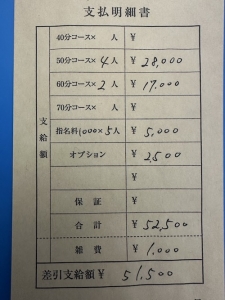 支払明細書
支給額
40分コース× 人 ¥
50分コース× 4人 ¥ 28,000
60分コース× 2人 ¥ 17,000
70分コース× 人 ¥
指名料1000×5人 ¥ 5,000
オプション ¥ 2,500
¥
保証 ¥
合計 ¥ 52,500
雑費 ¥ 1,000
差引支給額 ¥ 51,500